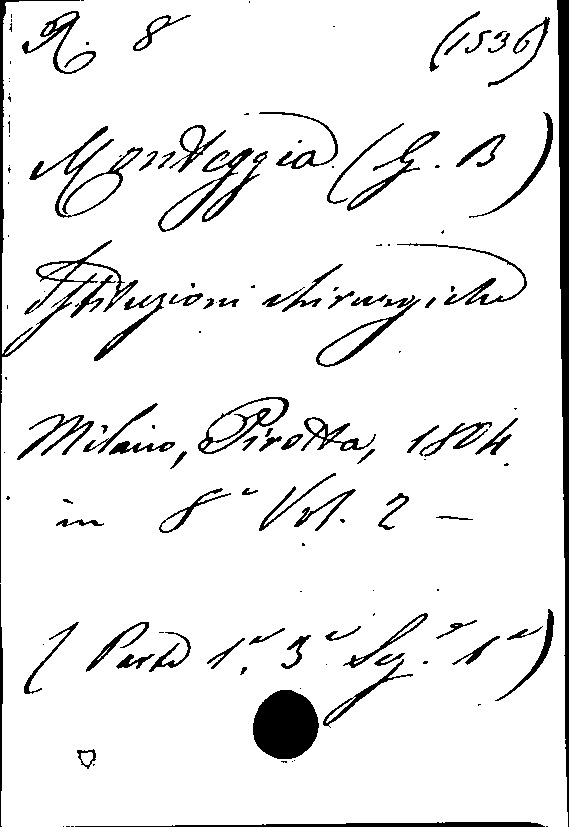 R. 8 (1536)
Monteggia (G. B)
Istituzioni chirurgiche
Milano, Pirotta, 1804
in 8° Vol. 2 —
(Parte 1ª. 3ª Sez.e 1ª)